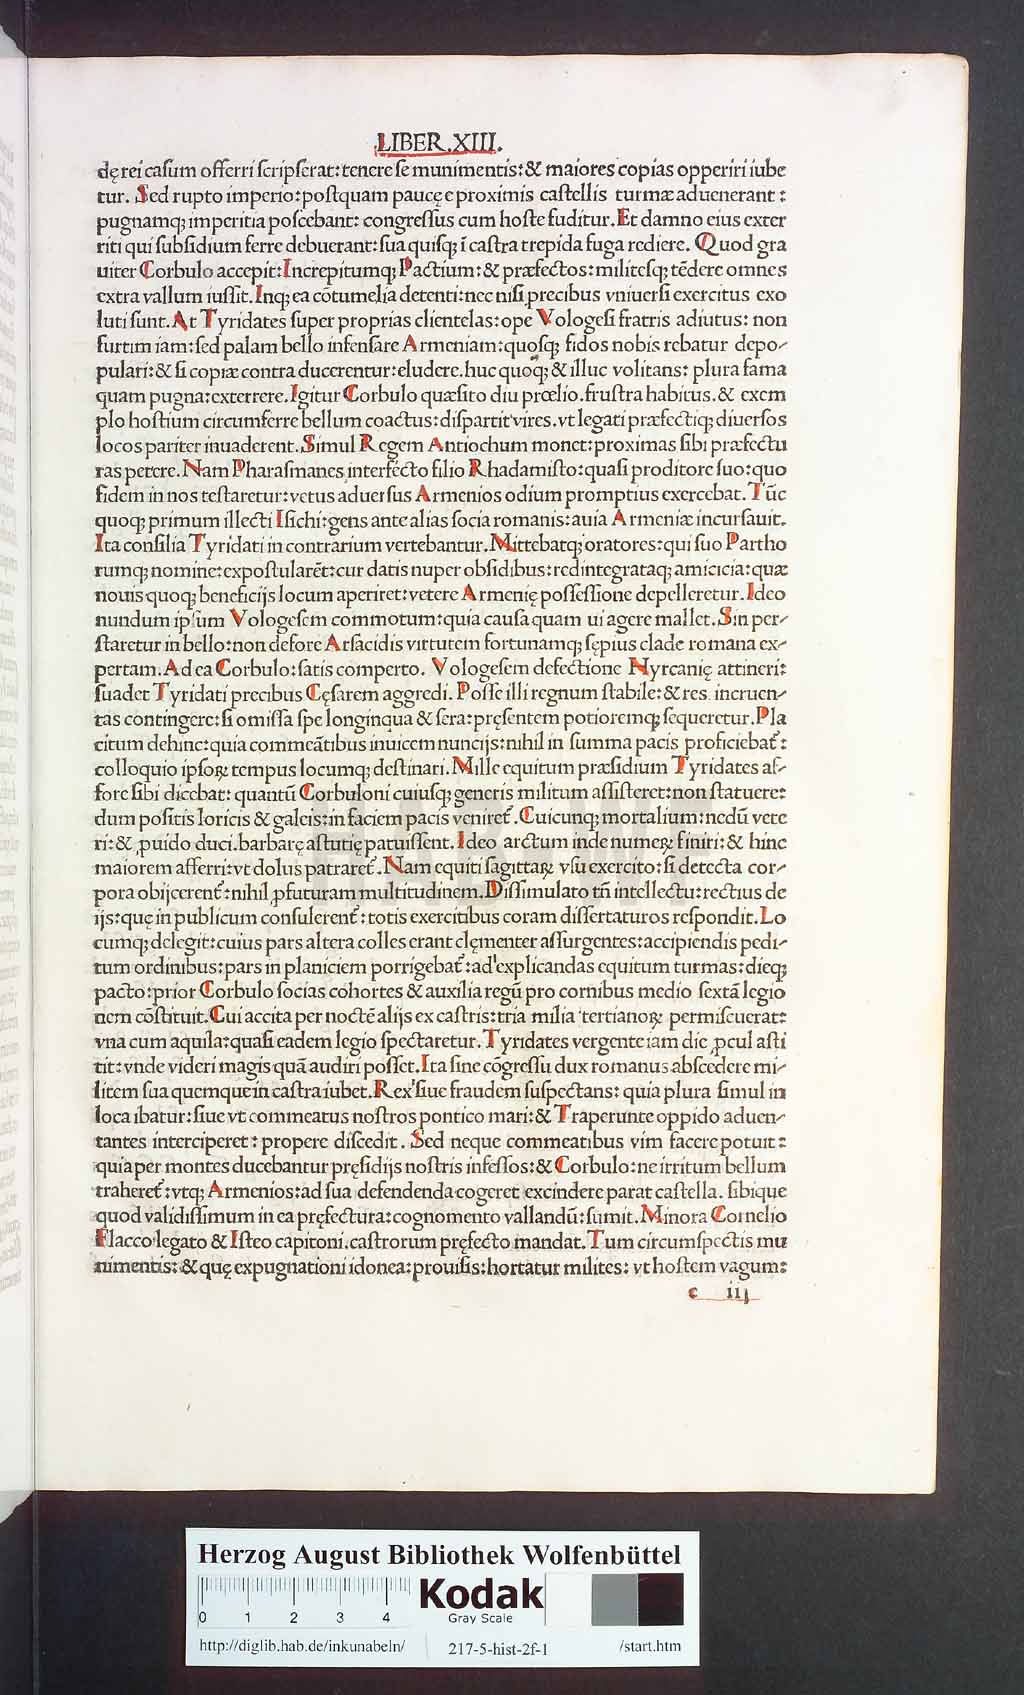 .LIBER.XIII.
dę rei casum offerri scripserat: tenere se munimentis: & maiores copias opperiri iube
tur. Sed rupto imperio: postquam paucę e proximis castellis turmæ aduenerant:
pugnamq; imperitia poscebant: congressus cum hoste fuditur. Et damno eius exter
riti qui subsidium ferre debuerant: sua quisq; ī castra trepida fuga rediere. Quod gra
uiter Corbulo accepit: Increpitumq; Pactium: & præfectos: militesq; tēdere omnes
extra vallum iussit. Inq; ea cōtumelia detenti: nec nisi precibus vniuersi exercitus exo
luti sunt. At Tyridates super proprias clientelas: ope Vologesi fratris adiutus: non
furtim iam: sed palam bello infensare Armeniam: quosq; fidos nobis rebatur depo-
pulari: & si copiæ contra ducerentur: eludere. huc quoq; & illuc volitans: plura fama
quam pugna: exterrere. Igitur Corbulo quæsito diu prœlio. frustra habitus. & exem
plo hostium circumferre bellum coactus: dispartit vires. vt legati præfectiq; diuersos
locos pariter inuaderent. Simul Regem Antiochum monet: proximas sibi præfectu
ras petere. Nam Pharasmanes interfecto filio Rhadamisto: quasi proditore suo: quo
fidem in nos testaretur: vetus aduersus Armenios odium promptius exercebat. Tūc
quoq; primum illecti Isichi: gens ante alias socia romanis: auia Armeniæ incursauit.
Ita consilia Tyridati in contrarium vertebantur. Mittebatq; oratores: qui suo Partho
rumq; nomine: expostularēt: cur datis nuper obsidibus: redintegrataq; amicicia: quæ
nouis quoq; beneficijs locum aperiret: vetere Armenię possessione depelleretur. Ideo
nundum ipsum Vologesem commotum: quia causa quam ui agere mallet. Sin per-
staretur in bello: non defore Arsacidis virtutem fortunamq; sępius clade romana ex-
pertam. Ad ea Corbulo: satis comperto. Vologesem defectione Nyrcanię attineri:
suadet Tyridati precibus Cęsarem aggredi. Posse illi regnum stabile: & res incruen-
tas contingere: si omissa spe longinqua & sera: pręsentem potioremq; sequeretur. Pla
citum dehinc: quia commeātibus inuicem nuncijs: nihil in summa pacis proficiebat̄:
colloquio ipsoꝝ tempus locumq; destinari. Mille equitum præsidium Tyridates af-
fore sibi dicebat: quantū Corbuloni cuiusq; generis militum assisteret: non statuere:
dum positis loricis & galeis: in faciem pacis veniret̄. Cuicunq; mortalium: nedū vete
ri: & ꝓuido duci. barbarę astutię patuissent. Ideo arctum inde numeꝝ finiri: & hinc
maiorem afferri: vt dolus patraret̄. Nam equiti sagittaꝝ vsu exercito: si detecta cor-
pora obijcerent̄: nihil ꝓfuturam multitudinem. Dissimulato tn̄ intellectu: rectius de
ijs: quę in publicum consulerent̄: totis exercitibus coram dissertaturos respondit. Lo
cumq; delegit: cuius pars altera colles erant clęmenter assurgentes: accipiendis pedi-
tum ordinibus: pars in planiciem porrigebat̄: ad explicandas equitum turmas: dieq;
pacto: prior Corbulo socias cohortes & auxilia regū pro cornibus medio sextā legio
nem cōstituit. Cui accita per noctē alijs ex castris: tria milia tertianoꝝ permiscuerat:
vna cum aquila: quasi eadem legio spectaretur. Tyridates vergente iam die ꝓcul asti
tit: vnde videri magis quā audiri posset. Ita sine cōgressu dux romanus abscedere mi-
litem sua quemque in castra iubet. Rex siue fraudem suspectans: quia plura simul in
loca ibatur: siue vt commeatus nostros pontico mari: & Traperunte oppido aduen-
tantes interciperet: propere discedit. Sed neque commeatibus vim facere potuit:
quia per montes ducebantur pręsidijs nostris infessos: & Corbulo: ne irritum bellum
traheret̄: vtq; Armenios: ad sua defendenda cogeret excindere parat castella. sibique
quod validissimum in ea pręfectura: cognomento vallandū: sumit. Minora Cornelio
Flacco legato & Isteo capitoni. castrorum pręfecto mandat. Tum circumspectis mu
nimentis: & quę expugnationi idonea: prouisis: hortatur milites: vt hostem vagum:
c iij
Herzog August Bibliothek Wolfenbüttel
0 1 2 3 4
Kodak
Gray Scale
http://diglib.hab.de/inkunabeln/ 217-5-hist-2f-1 /start.htm
HAB-WF